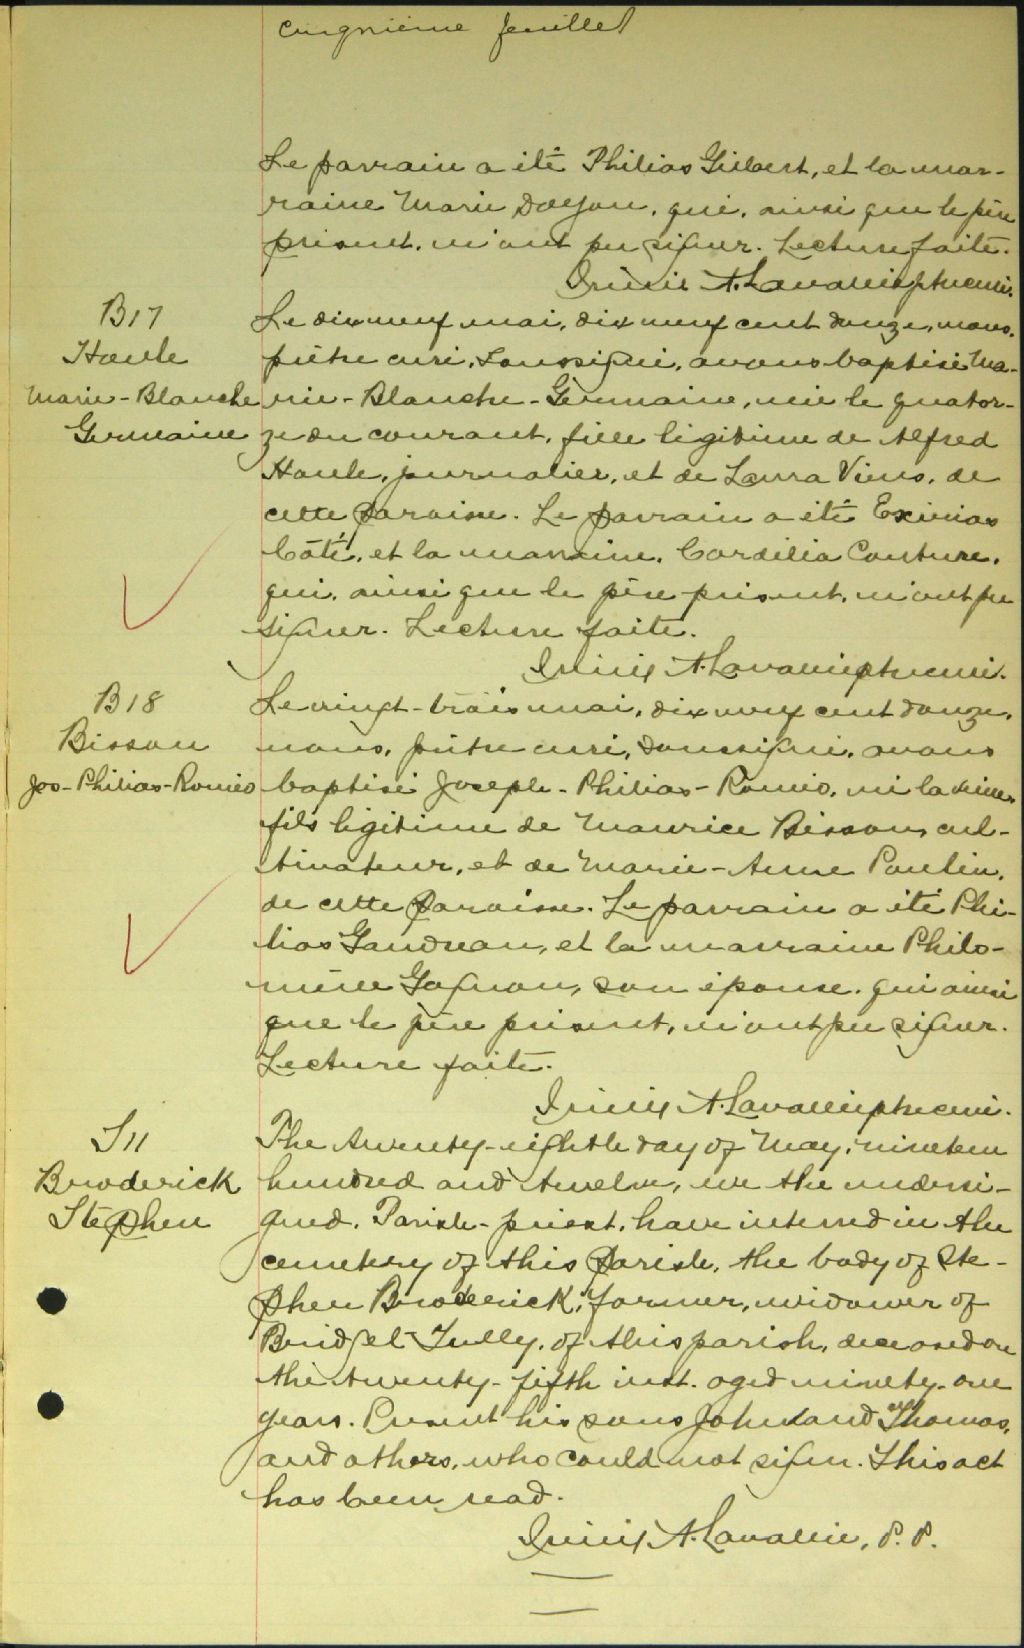 cinquième feuillet
Le parrain a été Philias Gilbert, et la mar-
raine Marie Doyon, qui, ainsi que le père
présent, n'ont pu signer. Lecture faite.
A. Lavallée ptre curé.
B17
Houle
Marie-Blanche
Germaine
Le dix neuf mai, dix neuf cent douze, nous,
prêtre curé, soussigné, avons baptisé Ma-
rie-Blanche-Germaine, née le quator-
ze du courant, fille légitime de Alfred
Houle, journalier, et de Laura Viens, de
cette paroisse. Le parrain a été Exinias
Côté, et la marraine, Cordélia Couture,
qui, ainsi que le père présent, n'ont pu
signer. Lecture faite.
A. Lavallée ptre curé.
B18
Bisson
Jos-Philias-Roméo
Le vingt-trois mai, dix neuf cent douze,
nous, prêtre curé, soussigné, avons
baptisé Joseph-Philias-Roméo, né la veille
fils légitime de Maurice Bisson, cul-
tivateur, et de Marie-Anne Poulin,
de cette paroisse. Le parrain a été Phi-
lias Gaudreau, et la marraine Philo-
mène Gagnon, son épouse, qui ainsi
que le père présent, n'ont pu signer.
Lecture faite.
A. Lavallée ptre curé.
S11
Broderick
Stephen
The twenty-eighth day of May, nineteen
hundred and twelve, we the undersi-
gned, Parish-priest, have interred in the
cemetery of this parish, the body of Ste-
phen Broderick, farmer, widower of
Bridget Tully, of this parish, deceased on
the twenty-fifth inst. aged ninety-one
years. Present his sons John and Thomas,
and others, who could not sign. This act
has been read.
A. Lavallée, P. P.